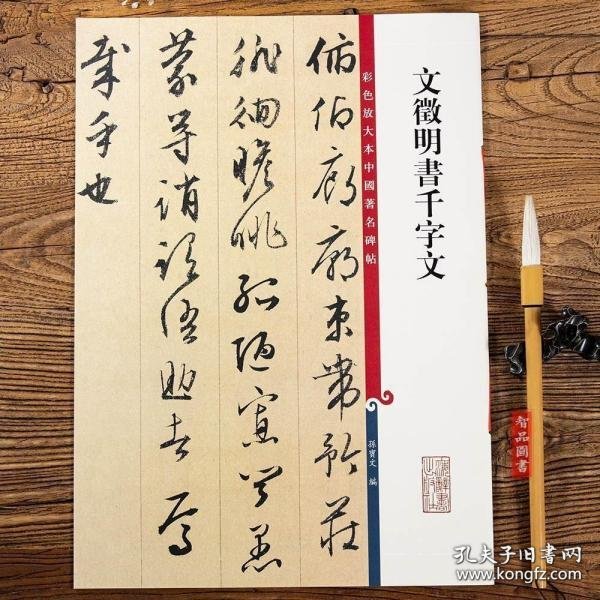 文徵明書千字文
彩色放大本中國著名碑帖
孫寶文 編
俯仰廊廟束帶矜莊
徘徊瞻眺孤陋寡聞愚
蒙等誚謂語助者焉
哉乎也
智品圖書
孔夫子旧书网
www.kongfz.com